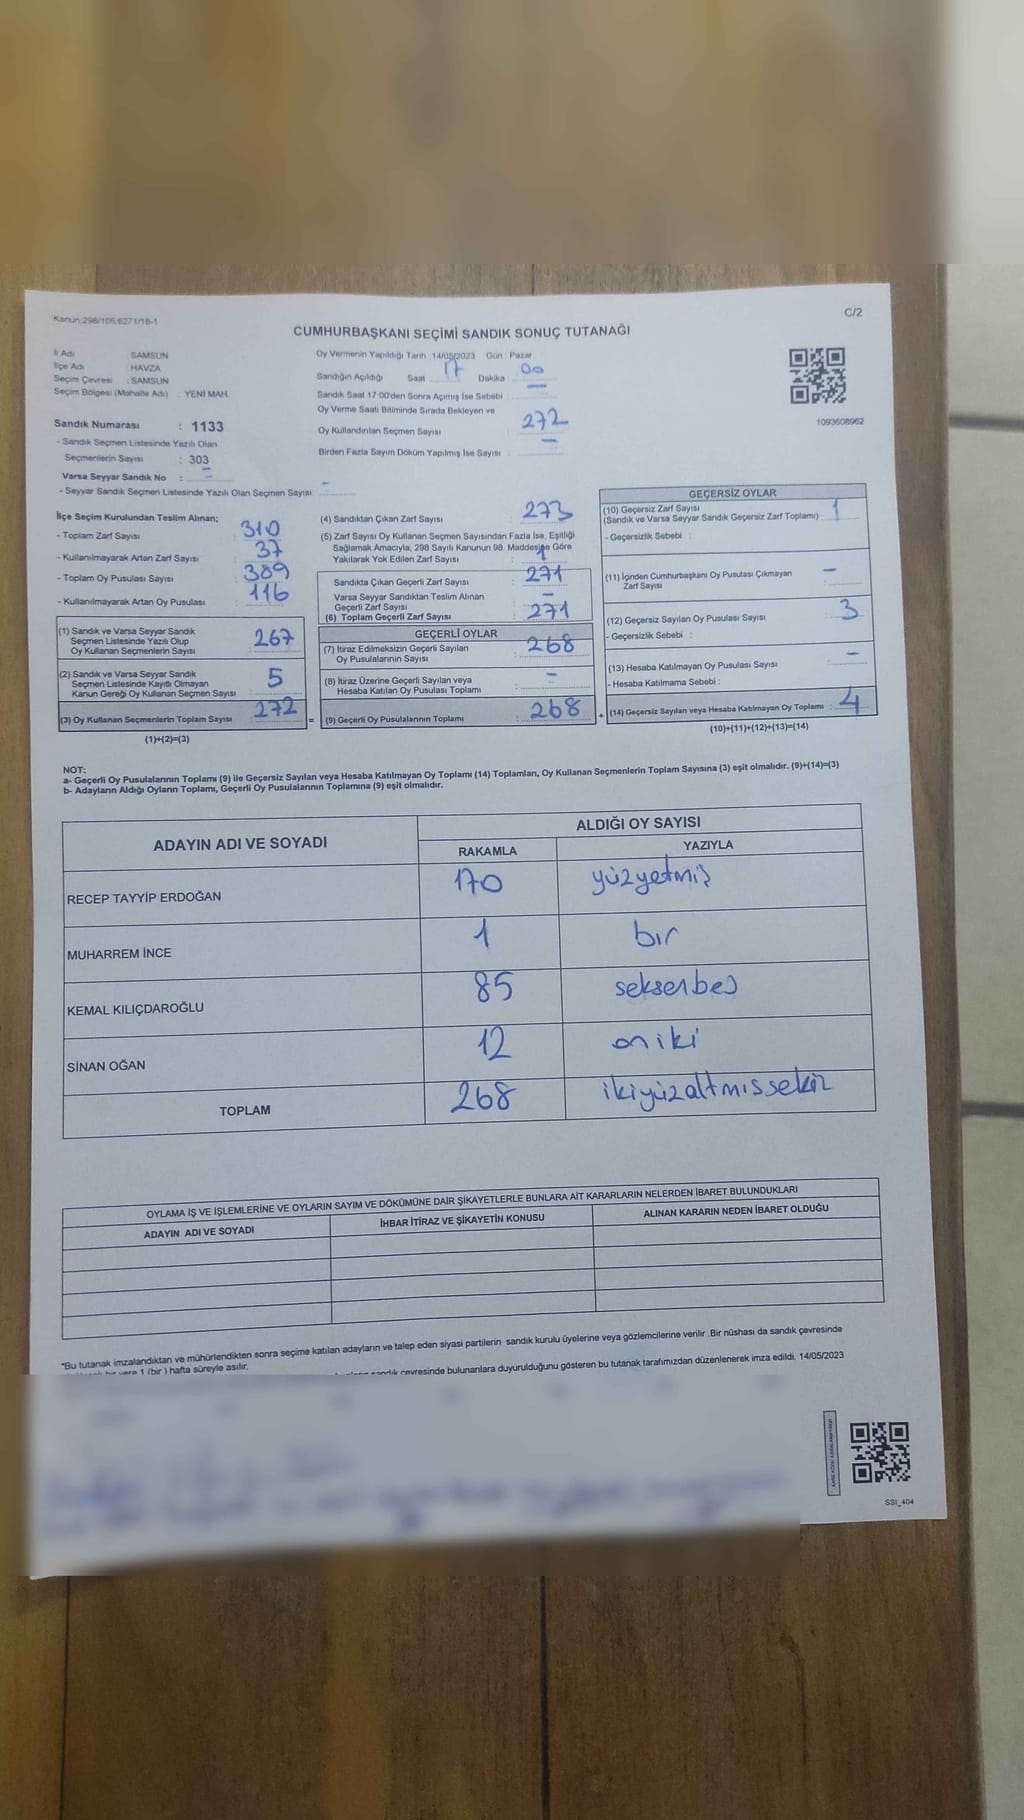 Kanun:298/105;6271/18-1
C/2
CUMHURBAŞKANI SEÇİMİ SANDIK SONUÇ TUTANAĞI
İl Adı : SAMSUN
İlçe Adı : HAVZA
Seçim Çevresi : SAMSUN
Seçim Bölgesi (Mahalle Adı) : YENİ MAH.
Oy Vermenin Yapıldığı Tarih : 14/05/2023 Gün : Pazar
Sandığın Açıldığı Saat : 17 Dakika : 00
Sandık Saat 17:00'den Sonra Açımış İse Sebebi : —
Oy Verme Saati Bitiminde Sırada Bekleyen ve
Oy Kullandırılan Seçmen Sayısı : 272
Birden Fazla Sayım Döküm Yapılmış İse Sayısı : —
1093608962
Sandık Numarası : 1133
- Sandık Seçmen Listesinde Yazılı Olan
Seçmenlerin Sayısı : 303
Varsa Seyyar Sandık No : —
- Seyyar Sandık Seçmen Listesinde Yazılı Olan Seçmen Sayısı: —
İlçe Seçim Kurulundan Teslim Alınan;
- Toplam Zarf Sayısı : 310
- Kullanılmayarak Artan Zarf Sayısı : 37
- Toplam Oy Pusulası Sayısı : 389
- Kullanılmayarak Artan Oy Pusulası : 116
(1) Sandık ve Varsa Seyyar Sandık
Seçmen Listesinde Yazılı Olup
Oy Kullanan Seçmenlerin Sayısı : 267
(2) Sandık ve Varsa Seyyar Sandık
Seçmen Listesinde Kayıtlı Olmayan
Kanun Gereği Oy Kullanan Seçmen Sayısı : 5
(3) Oy Kullanan Seçmenlerin Toplam Sayısı : 272
(1)+(2)=(3)
(4) Sandıktan Çıkan Zarf Sayısı : 273
(5) Zarf Sayısı Oy Kullanan Seçmen Sayısından Fazla İse, Eşitliği
Sağlamak Amacıyla, 298 Sayılı Kanunun 98. Maddesine Göre
Yakılarak Yok Edilen Zarf Sayısı : 1
Sandıkta Çıkan Geçerli Zarf Sayısı : 271
Varsa Seyyar Sandıktan Teslim Alınan
Geçerli Zarf Sayısı : —
(6) Toplam Geçerli Zarf Sayısı : 271
GEÇERLİ OYLAR
(7) İtiraz Edilmeksizin Geçerli Sayılan
Oy Pusulalarının Sayısı : 268
(8) İtiraz Üzerine Geçerli Sayılan veya
Hesaba Katılan Oy Pusulası Toplamı : —
= (9) Geçerli Oy Pusulalarının Toplamı : 268 +
GEÇERSİZ OYLAR
(10) Geçersiz Zarf Sayısı
(Sandık ve Varsa Seyyar Sandık Geçersiz Zarf Toplamı) : 1
- Geçersizlik Sebebi :
(11) İçinden Cumhurbaşkanı Oy Pusulası Çıkmayan
Zarf Sayısı : —
(12) Geçersiz Sayılan Oy Pusulası Sayısı : 3
- Geçersizlik Sebebi :
(13) Hesaba Katılmayan Oy Pusulası Sayısı : —
- Hesaba Katılmama Sebebi :
(14) Geçersiz Sayılan veya Hesaba Katılmayan Oy Toplamı : 4
(10)+(11)+(12)+(13)=(14)
NOT:
a- Geçerli Oy Pusulalarının Toplamı (9) ile Geçersiz Sayılan veya Hesaba Katılmayan Oy Toplamı (14) Toplamları, Oy Kullanan Seçmenlerin Toplam Sayısına (3) eşit olmalıdır. (9)+(14)=(3)
b- Adayların Aldığı Oyların Toplamı, Geçerli Oy Pusulalarının Toplamına (9) eşit olmalıdır.
ADAYIN ADI VE SOYADI
ALDIĞI OY SAYISI
RAKAMLA YAZIYLA
RECEP TAYYİP ERDOĞAN 170 yüzyetmiş
MUHARREM İNCE 1 bir
KEMAL KILIÇDAROĞLU 85 seksenbeş
SİNAN OĞAN 12 oniki
TOPLAM 268 ikiyüzaltmışsekiz
OYLAMA İŞ VE İŞLEMLERİNE VE OYLARIN SAYIM VE DÖKÜMÜNE DAİR ŞİKAYETLERLE BUNLARA AİT KARARLARIN NELERDEN İBARET BULUNDUKLARI
ADAYIN ADI VE SOYADI İHBAR İTİRAZ VE ŞİKAYETİN KONUSU ALINAN KARARIN NEDEN İBARET OLDUĞU
*Bu tutanak imzalandıktan ve mühürlendikten sonra seçime katılan adayların ve talep eden siyasi partilerin sandık kurulu üyelerine veya gözlemcilerine verilir .Bir nüshası da sandık çevresinde
bir yere 1 (bir ) hafta süreyle asılır.
sandık çevresinde bulunanlara duyurulduğunu gösteren bu tutanak tarafımızdan düzenlenerek imza edildi. 14/05/2023
SSI_404